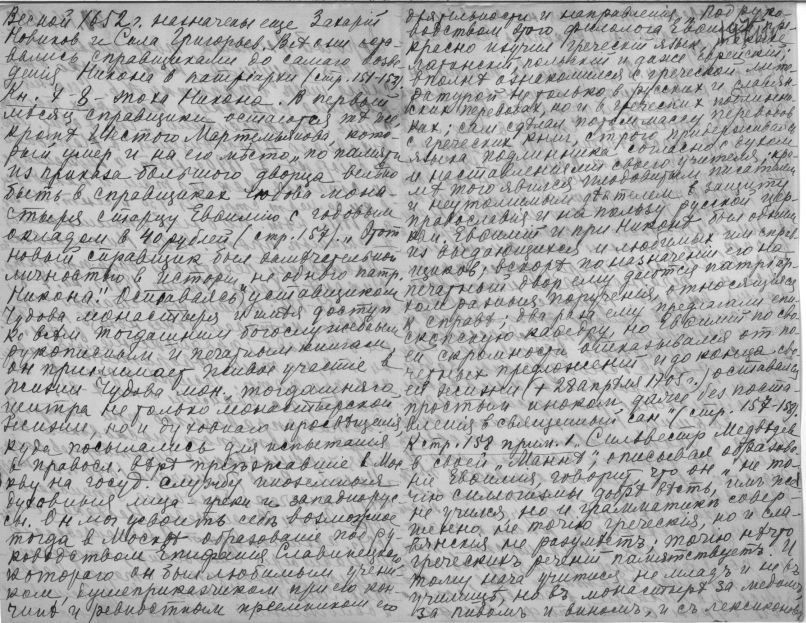 Весной 1652 г. назначены еще Захарий
Новиков и Сила Григорьев. Все они
вались справщиками до самого возве-
дения Никона в патриархи (стр. 151-152)
Кн. эпоха Никона. В первый
месяц справщики остаются те же
кроме Шестого Мартемьянова, кото-
рый умер и на его место „по памяти
из приказа большого дворца велено
быть в справщиках Чюдова мона-
стыря старцу Евфимию с годовым
окладом в 40 рублей (стр. 157). „Этот
новый справщик был замечательной
личностью в истории не одного патр.
Никона." Оставаясь уставщиком
Чудова монастыря и имея доступ
ко всем тогдашним богослужебным
рукописным и печатным книгам
он принимает живое участие в
жизни Чудова мон., тогдашняго
центра не только монастырской
жизни, но и духовнаго просвещения
куда посылались для испытания
в правосл. вере приезжавшие в Мос-
кву на госуд. службу иноземныя
духовныя лица греки и западнорус-
сы. Он мог усвоить себе возможное
тогда в Москве образование под ру-
ководством Епифания Славинецкого,
которого он был любимым учени-
ком, душеприказчиком при его кон-
чине и ревностным преемником его
деятельности и направления. Под руко-
водством этого филолога Евфимий
красно изучил греческий язык
латинский, польский и даже еврейский,
вполне ознакомился с греческой лите-
ратурой не только в русских и славян-
ских переводах, но и в греческих подлинни-
ках; сам сделал потом массу переводов
с греческих книг, строго придерживаясь
языка подлинника согласно с духом
и наставлениями своего учителя, кро-
ме того явился плодовитым писателем
и неутомимым деятелем в защиту
православия и на пользу русской цер-
кви. Евфимий и при Никоне был одним
из выдающихся и любимых им справ-
щиков; вскоре по назначении его на
печатный двор ему даются патриар-
хом разныя поручения, относящиеся
к справе; два раза ему предлагали епи-
скопскую кафедру, но Евфимий по сво-
ей скромности отказывался от по-
четных предложений и до конца сво-
ей жизни (+ 28 апреля 1705 г.) оставался
простым иноком даже без поста-
вления в священный сан" (стр. 157-158).
К стр. 158 прим. 1. Сильвестр Медведев
в своей „Манне", описывая образова-
ние Евфимия, говорит что он „не то-
чию силлогизмы добре весть, имже
не учился, но и грамматики совер-
шенно, не точию греческия, но и сла-
вянския не разумеет; точию нечто
греческих речений памятствует. И
тому нача учитися не млад и не в
училище, но в монастыре за медом
за пивом и вином, и с лексиконов